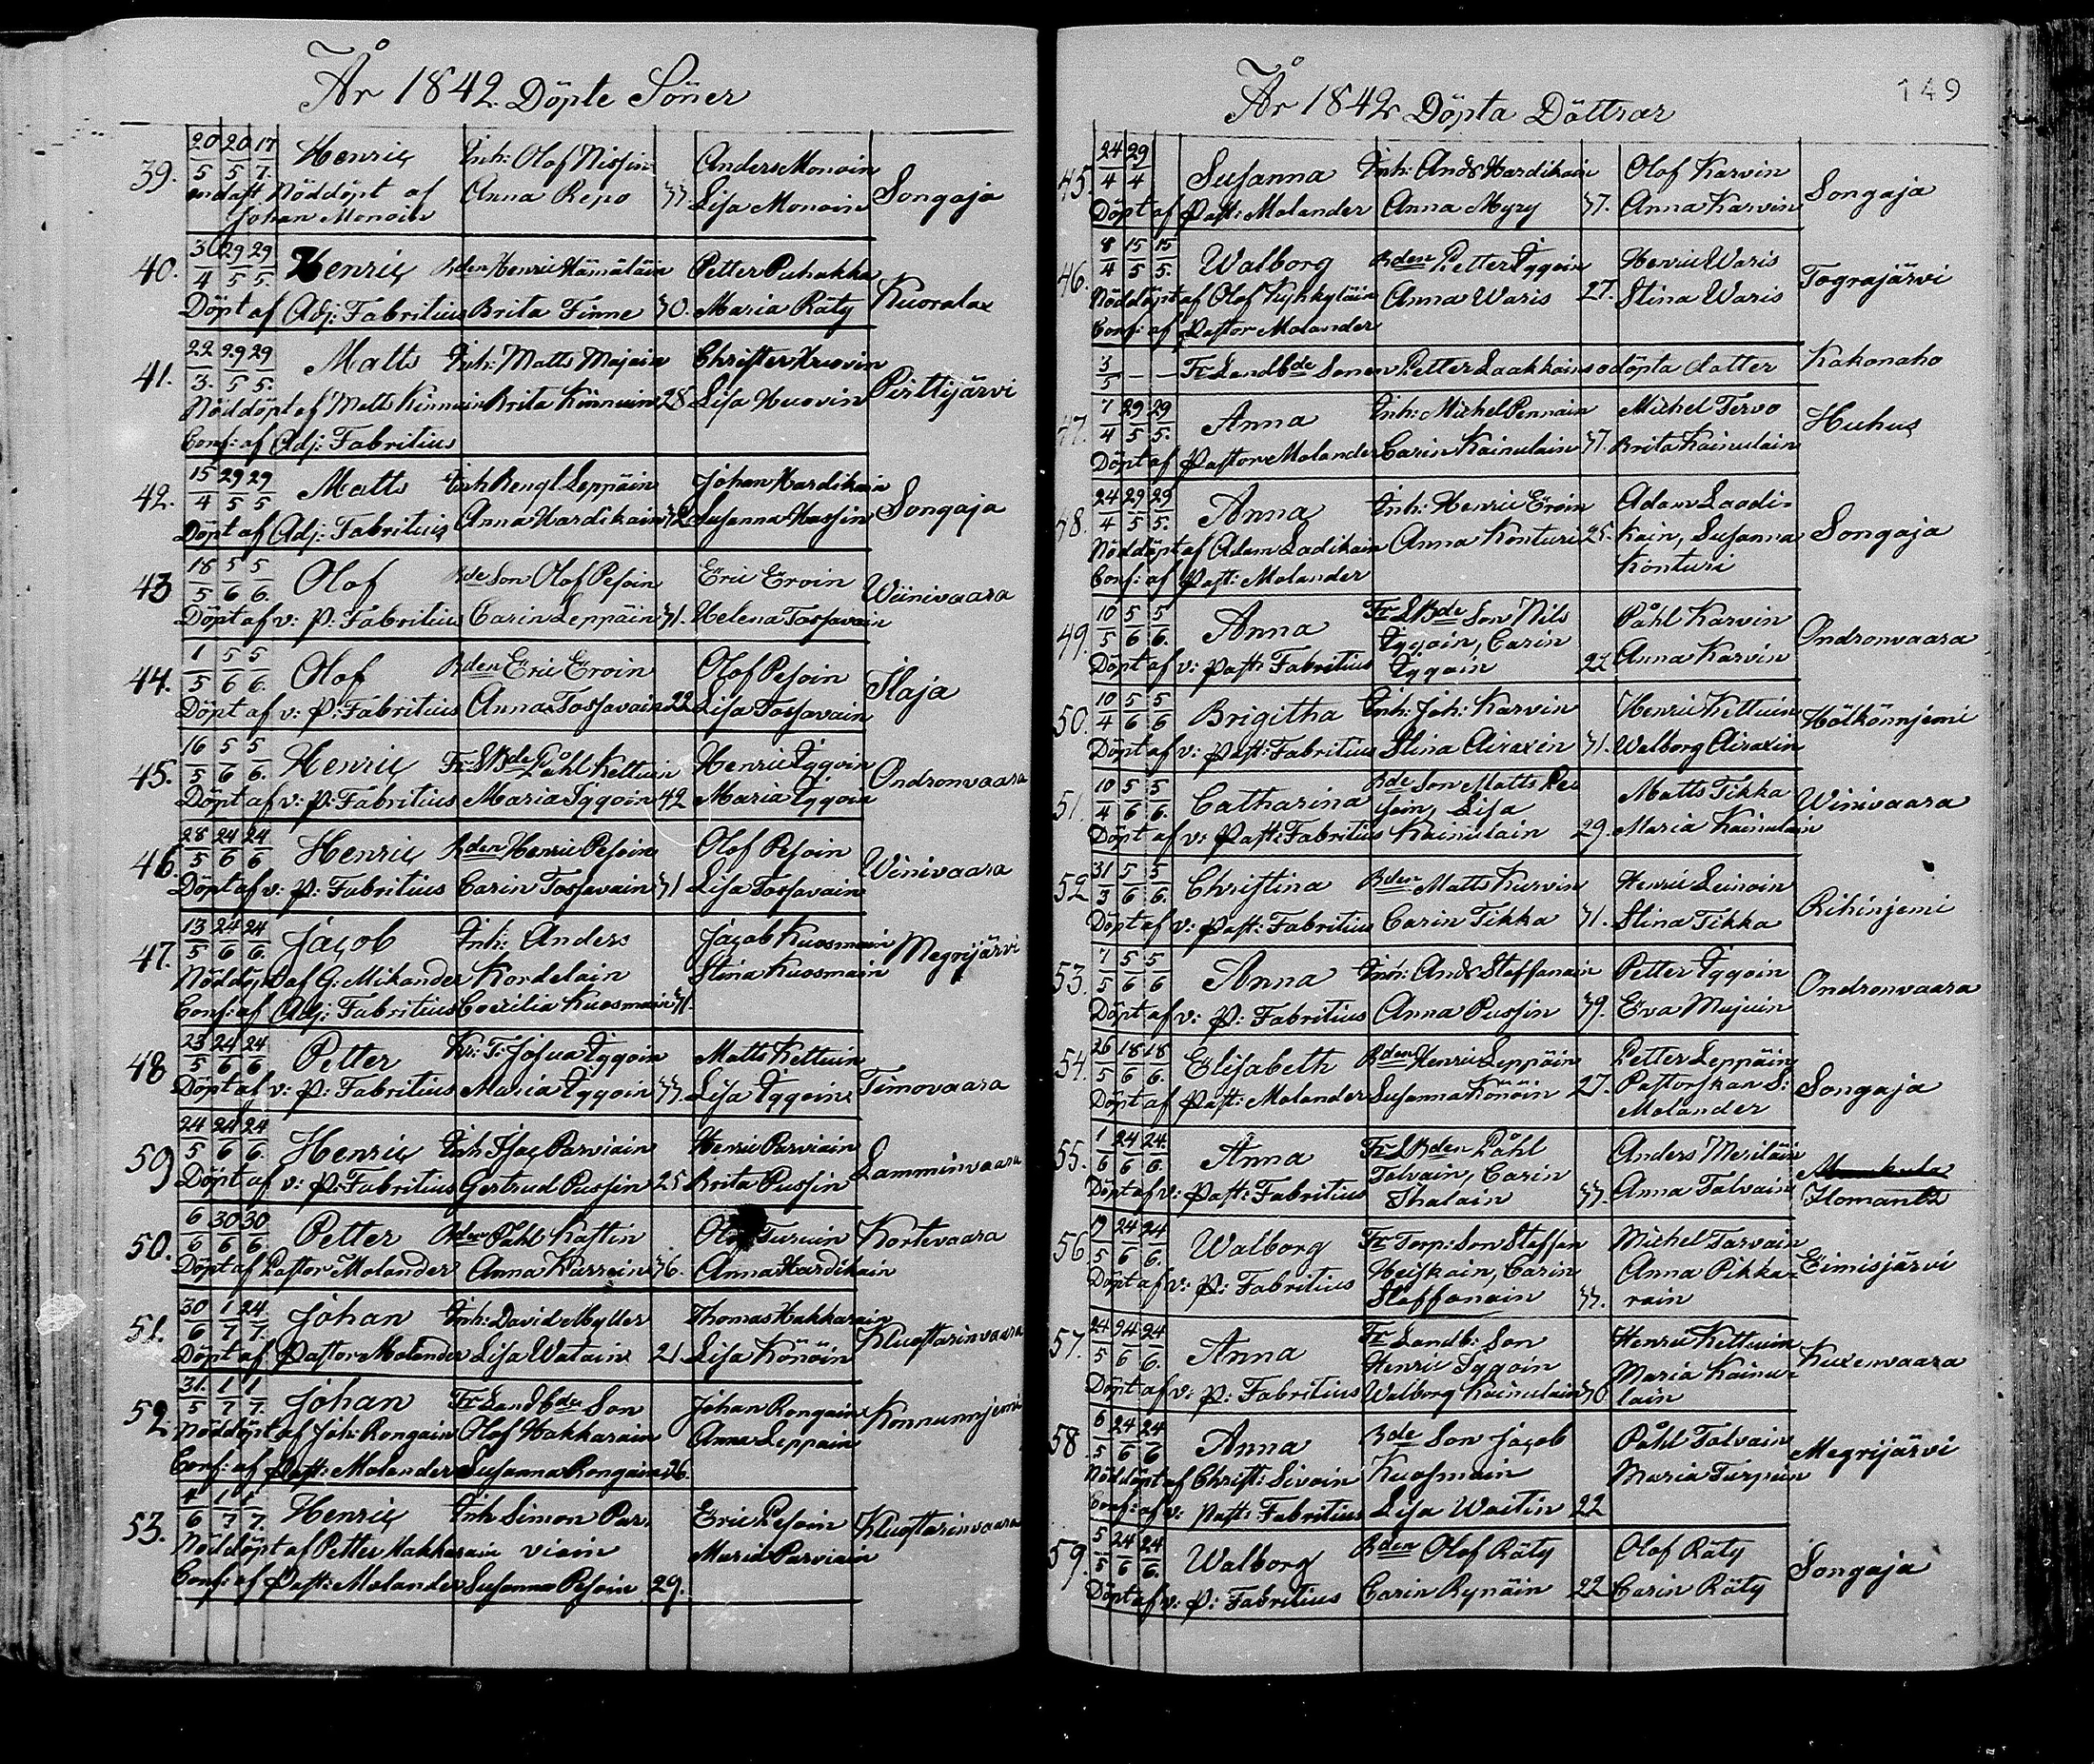 År 1842. Döpte Söner
39. 20/5 20/5 17/7. Henric Inh: Olof Nissin Anders Monoin Songaja
endast Nöddöpt af Anna Repo 33. Lisa Monoin
Johan Monoin
40. 30/4 29/5 29/5. Henric Bden Henric Hämäläin Petter Puhakka Kuoralax
Döpt af Adj: Fabritius Brita Finne 30. Maria Räty
41. 22/3. 29/5 29/5. Matts Inh: Matts Majoin Christer Huovin Pirttijärvi
Nöddöpt af Matts Kinnuin Brita Könnuin 28 Lisa Huovin
Conf: af Adj: Fabritius
42. 15/4 29/5 29/5 Matts Inh Bengt Leppäin Johan Hardikain Songaja
Döpt af Adj: Fabritius Anna Hardikain 32 Susanna Hassin
43 18/5 5/6 5/6. Olof Bde Son Olof Pesoin Eric Eroin Wiinivaara
Döpt af v: P: Fabritius Carin Leppäin 31. Helena Tossavain
44. 1/5 5/6 5/6. Olof Bden Eric Eroin Olof Pesoin Ilaja
Döpt af v: P: Fabritius Anna Tossavain 22 Lisa Tossavain
45. 16/5 5/6 5/6. Henric Fr LBde Påhl Kettuin Henric Iggoin Ondronvaara
Döpt af v: P: Fabritius Maria Iggoin 42 Maria Iggoin
46. 28/5 24/6 24/6 Henric Bden Henric Pesoin Olof Pesoin Winivaara
Döpt af v: P: Fabritius Carin Tossavain 31 Lisa Tossavain
47. 13/5 24/6 24/6. Jacob Inh: Anders Jacob Kuosmain Megrijärvi
Nöddöpt af G: Mikander Kordelain Stina Kuosmain
Conf: af Adj: Fabritius Coecilia Kuosmain 31.
48 23/5 24/6 24/6 Petter Kr: T: Josua Iggoin Matts Kettuin Timovaara
Döpt af v: P: Fabritius Maria Iggoin 33. Lisa Iggoin
50) 24/5 24/6 24/6. Henric Inh Isac Parviain Henric Parviain Lamminvaara
Döpt af v: P: Fabritius Gertrud Pussin 25 Brita Pussin
50. 6/6 30/6 30/6 Petter Bden Påhl Kastin Olof Turuin Kortevaara
Döpt af Pastor Molander Anna Kurvin 36. Anna Hardikain
51. 30/6 1/7 24/7. Johan Inh: David Myller Thomas Hakkarain Kluostarinvaara
Döpt af Pastor Molander Lisa Watain 21 Lisa Könöin
52 31./5 1/7. 1/7. Johan Fr Landbde Son Johan Rongain Konnunnjemi
Nöddöpt af Joh: Rongain Olof Hakkarain Anna Leppäin
Conf: af Past: Molander Susanna Rongain 26.
53. 4/6 1/7 1/7. Henric Inh Simon Par= Eric Pesoin Kluostarinvaara
Nöddöpt af Petter Hakkarain viain Maria Parviain
Conf: af Past: Molander Susanna Pesoin 29.
149
År 1842 Döpta Döttrar
45. 24/4 29/4 Susanna Inh: Ands Hardikain Olof Karvin Songaja
Döpt af Past: Molander Anna Myry 37. Anna Karvin
46. 8/4 15/5 15/5. Walborg Bden Petter Iggoin Henric Waris Tograjärvi
Nöddöpt af Olof Kyhkyläin Anna Waris 27. Stina Waris
Conf: af Pastor Molander
3/5 – – Fr Landbde Sonen Petter Laakkains odöpta dotter Kakonaho
47. 7/4 29/5 29/5. Anna Inh: Michel Pennain Michel Tervo Huhus
Döpt af Pastor Molander Carin Kainulain 37. Brita Kainulain
48. 24/4 29/5 29/5. Anna Inh: Henric Eroin Adam Laadi= Songaja
Nöddöpt af Adam Ladikain Anna Konturi 25. kain, Susanna
Conf: af Past: Molander Konturi
49. 10/5 5/6 5/6. Anna Fr LBde Son Nils Påhl Karvin Ondronvaara
Iggoin, Carin
Döpt af v: Past: Fabritius Iggoin 22 Anna Karvin
50. 10/4 5/6 5/6 Brigitha Inh: Joh: Karvin Henric Kettuin Hölkönnjemi
Döpt af v: Past: Fabritius Stina Airaxin 31. Walborg Airaxin
51. 10/4 5/6 5/6. Catharina Bde Son Matts Pe= Matts Tikka Winivaara
soin, Lisa
Döpt af v: Past: Fabritius Kainulain 29. Maria Kainulain
52 31/3 5/6 5/6. Christina Bden Matts Kurvin Henric Leinoin Rihinjemi
Döpt af v: Past: Fabritius Carin Tikka 31. Stina Tikka
53. 7/5 5/6 5/6 Anna Inh: Ands Staffanain Petter Iggoin Ondronvaara
Döpt af v: P: Fabritius Anna Pussin 39. Eva Mujuin
54. 26/5 18/6 18/6. Elisabeth Bden Henric Leppäin Petter Leppäin Songaja
Döpt af Past: Molander Susanna Könöin 27. Pastorskan S:
Molander
55. 1/6 24/6 24./6. Anna Fr LBden Påhl Anders Meriläin
Talvain, Carin
Döpt af v: Past: Fabritius Ihalain 33. Anna Talvain Ilomants
56 19/5 24/6 24/6. Walborg Fr Torp: Son Staffan Michel Tarvain Eimisjärvi
Heiskain, Carin Anna Pikka=
Döpt af v: P: Fabritius Staffanain 33. rain
57. 24/5 24/6 24/6. Anna Fr Landb: Son Henric Kettuin Kuxenvaara
Henric Iggoin Maria Kainu=
Döpt af v: P: Fabritius Walborg Kainulain 30 lain
58 6/5 24/6 24/6 Anna Bde Son Jacob Påhl Talvain Megrijärvi
Nöddöpt af Christ: Sivoin Kuosmain Maria Turpein
Conf: af v: Past: Fabritius Lisa Waitin 22
59. 5/5 24/6 24/6. Walborg Bden Olof Räty Olof Räty Songaja
Döpt af v: P: Fabritius Carin Rynäin 22 Carin Räty